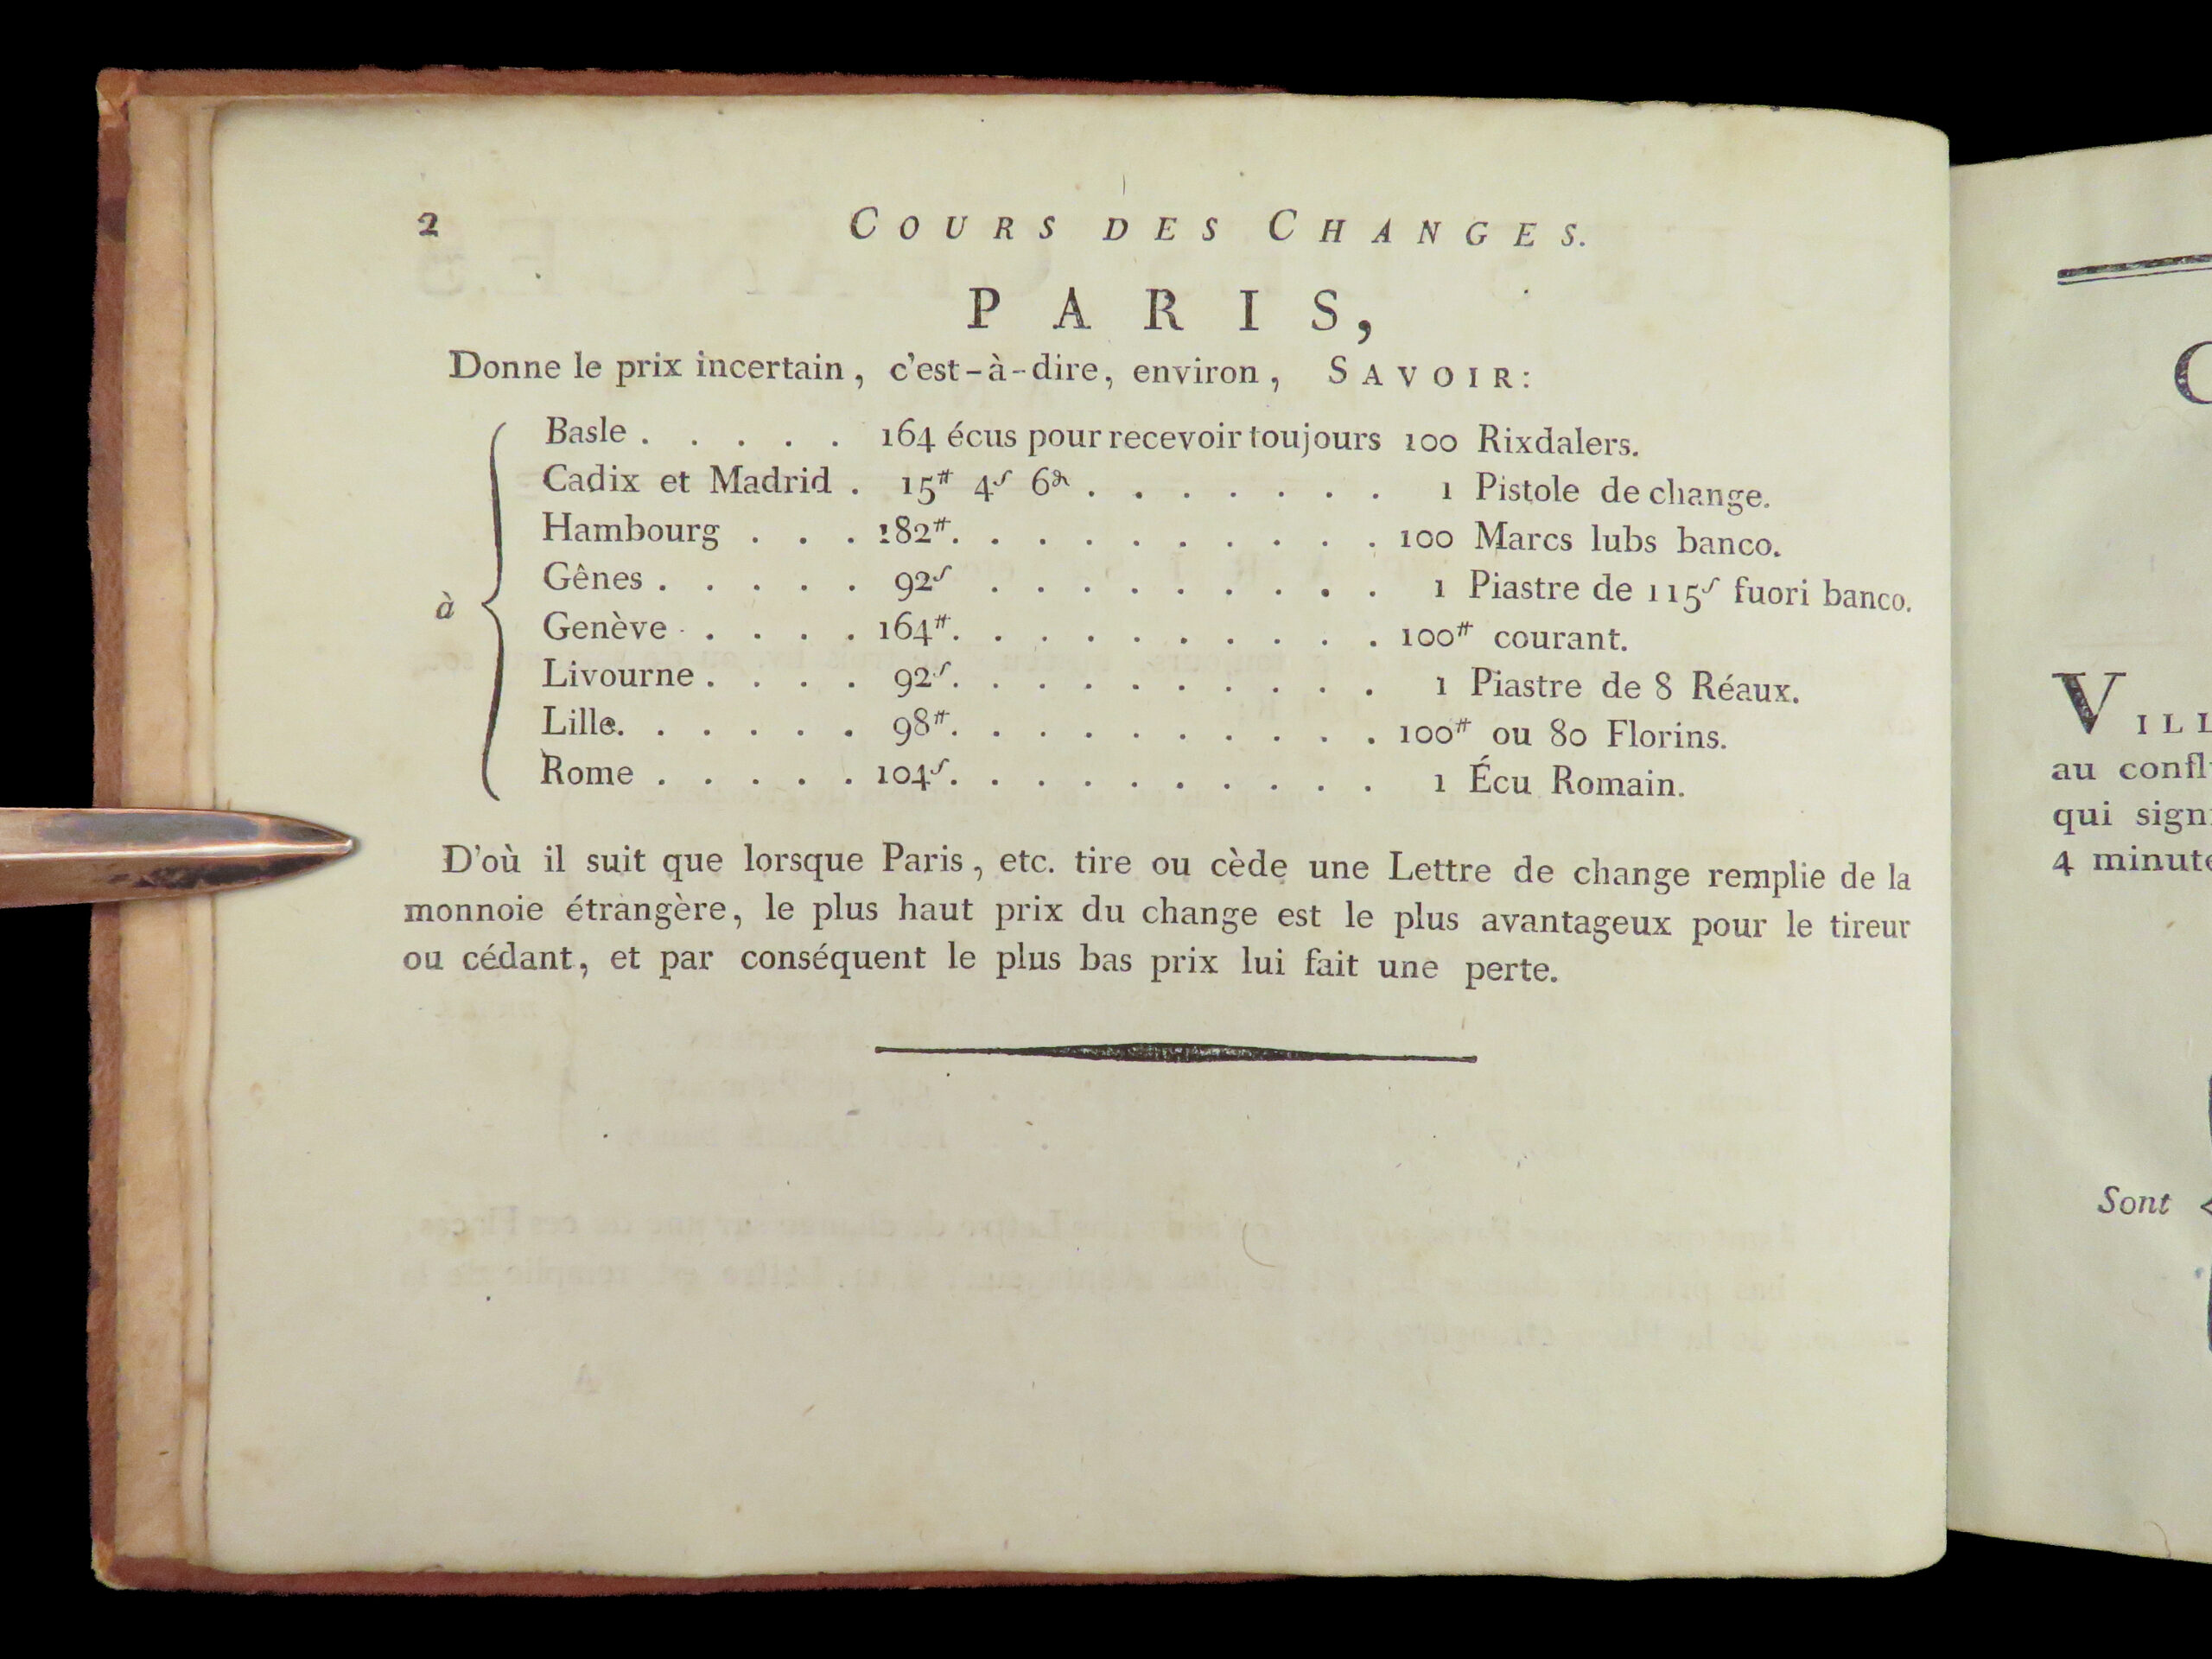 2 COURS DES CHANGES.
PARIS,
Donne le prix incertain, c'est-à-dire, environ, SAVOIR:
à
Basle . . . . . 164 écus pour recevoir toujours 100 Rixdalers.
Cadix et Madrid . 15# 4s 6d . . . . . . . 1 Pistole de change.
Hambourg . . . 182# . . . . . . . . . . 100 Marcs lubs banco.
Gênes . . . . . 92s . . . . . . . . . 1 Piastre de 115s fuori banco.
Genève . . . . 164# . . . . . . . . . . 100# courant.
Livourne . . . . 92s . . . . . . . . . . 1 Piastre de 8 Réaux.
Lille . . . . . . 98# . . . . . . . . . . 100# ou 80 Florins.
Rome . . . . . 104s . . . . . . . . . . 1 Écu Romain.
D'où il suit que lorsque Paris, etc. tire ou cède une Lettre de change remplie de la
monnoie étrangère, le plus haut prix du change est le plus avantageux pour le tireur
ou cédant, et par conséquent le plus bas prix lui fait une perte.
C
VILL
au confl
qui sign
4 minute
Sont